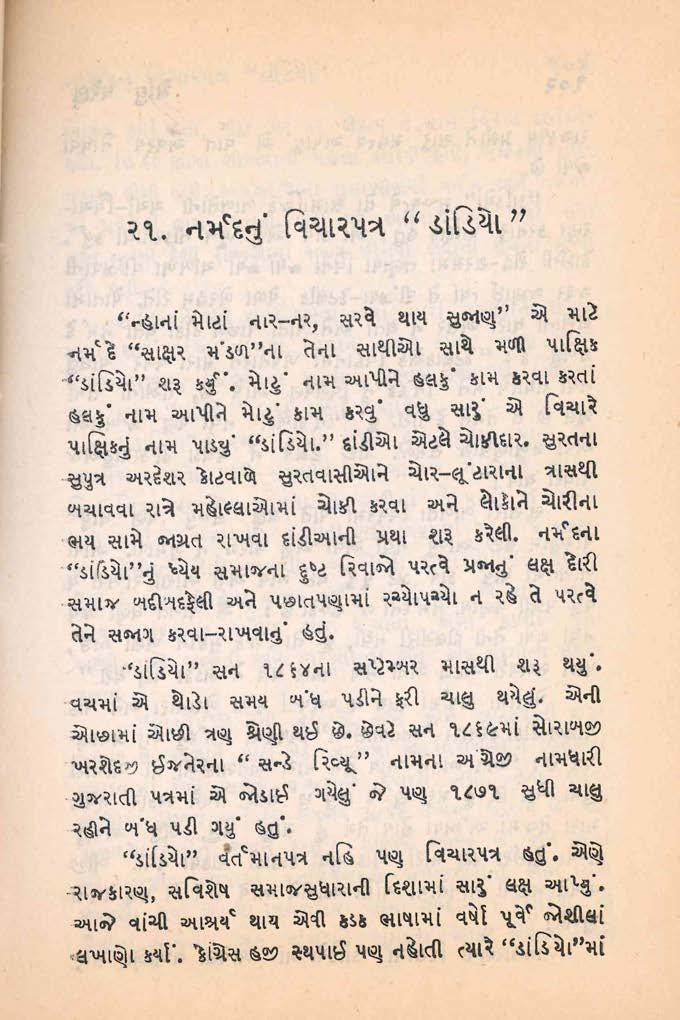 ૨૧. નર્મદનું વિચારપત્ર “ડાંડિયો”
“ન્હાનાં મોટાં નાર–નર, સરવે થાય સુજાણ” એ માટે
નર્મદે “સાક્ષર મંડળ”ના તેના સાથીઓ સાથે મળી પાક્ષિક
“ડાંડિયો” શરૂ કર્યું. મોટું નામ આપીને હલકું કામ કરવા કરતાં
હલકું નામ આપીને મોટું કામ કરવું વધુ સારું એ વિચારે
પાક્ષિકનું નામ પાડયું “ડાંડિયો.” દાંડીઓ એટલે ચોકીદાર. સુરતના
સુપુત્ર અરદેશર કોટવાળે સુરતવાસીઓને ચોર–લૂંટારાના ત્રાસથી
બચાવવા રાત્રે મહોલ્લાઓમાં ચોકી કરવા અને લોકોને ચોરીના
ભય સામે જાગ્રત રાખવા દાંડીઆની પ્રથા શરૂ કરેલી. નર્મદના
“ડાંડિયો”નું ધ્યેય સમાજના દુષ્ટ રિવાજો પરત્વે પ્રજાનું લક્ષ દોરી
સમાજ બદીબદફેલી અને પછાતપણામાં રચ્યોપચ્યો ન રહે તે પરત્વે
તેને સજાગ કરવા–રાખવાનું હતું.
“ડાંડિયો” સન ૧૮૬૪ના સપ્ટેમ્બર માસથી શરૂ થયું.
વચમાં એ થોડો સમય બંધ પડીને ફરી ચાલુ થયેલું. એની
ઓછામાં ઓછી ત્રણ શ્રેણી થઈ છે. છેવટે સન ૧૮૬૯માં સોરાબજી
ખરશેદજી ઈજનેરના “સન્ડે રિવ્યૂ” નામના અંગ્રેજી નામધારી
ગુજરાતી પત્રમાં એ જોડાઈ ગયેલું જે પણ ૧૮૭૧ સુધી ચાલુ
રહીને બંધ પડી ગયું હતું.
“ડાંડિયો” વર્તમાનપત્ર નહિ પણ વિચારપત્ર હતું. એણે
રાજકારણ, સવિશેષ સમાજસુધારાની દિશામાં સારું લક્ષ આપ્યું.
આજે વાંચી આશ્ચર્ય થાય એવી કડક ભાષામાં વર્ષો પૂર્વે જોશીલાં
લખાણો કર્યાં. કોંગ્રેસ હજી સ્થપાઈ પણ નહોતી ત્યારે “ડાંડિયો”માં